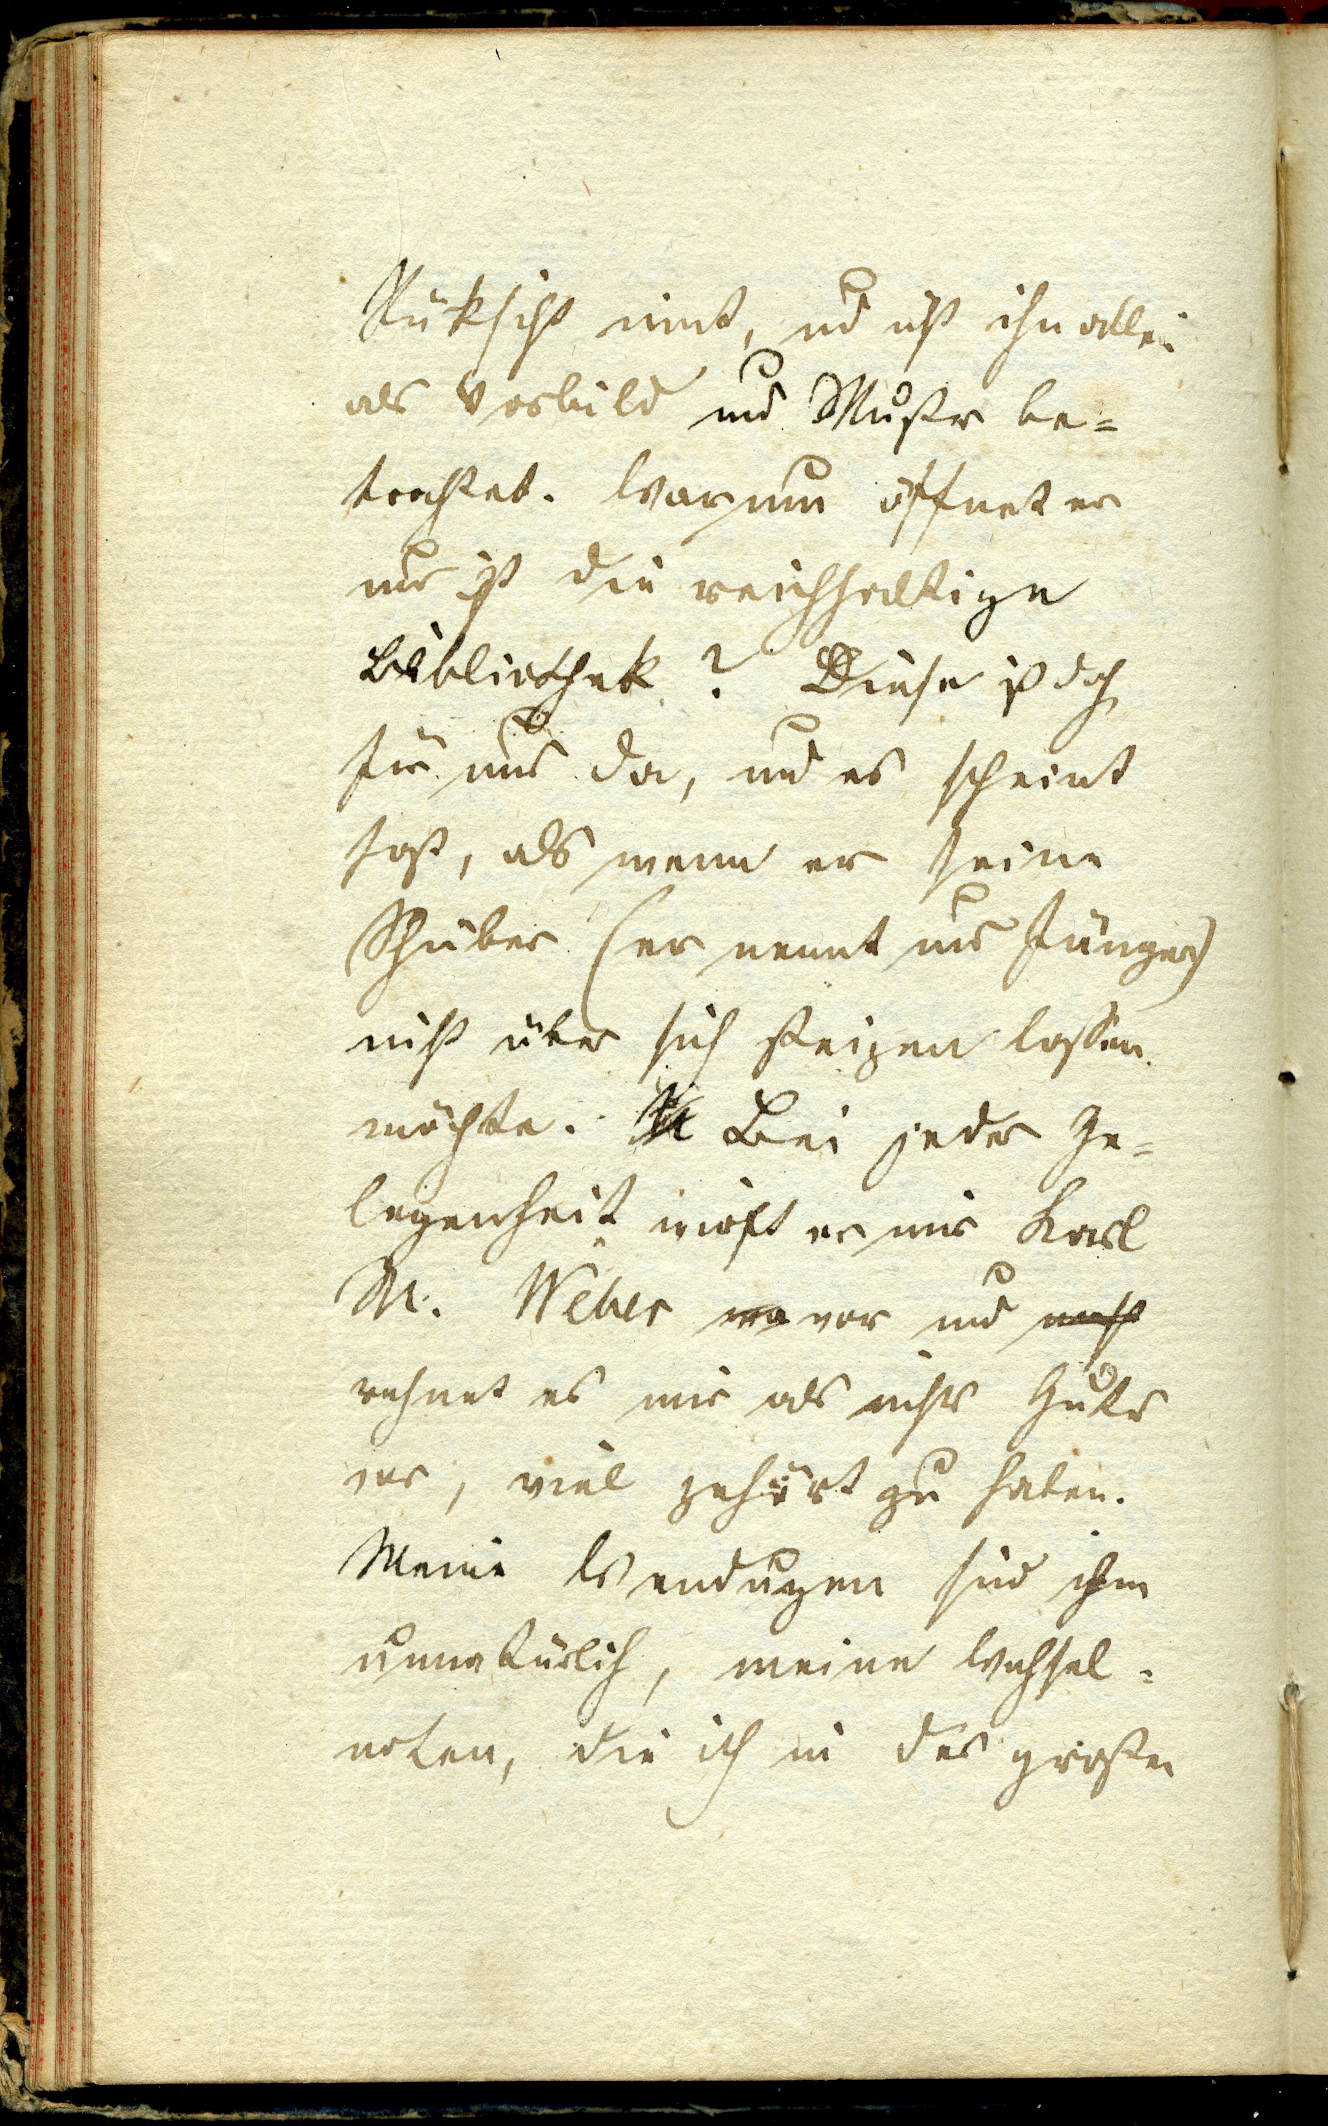 Rüksicht nimt, und nicht ihn allei
als Vorbild und Muster be-
trachtet. Warum öffnet er
uns ist die reichhaltige
Bibliothek? Diese ist doch
für uns da, und es scheint
fast, als wenn er seine
Schüler (er nennt uns Jünger)
nicht über sich steigen lassen
möchte. Bei jeder Ge-
legenheit wirft er mir Karl
M. Weber vor und
rechnet es mir als nichts Gutes
vor, viel gehört zu haben.
Meine Wendungen sind ihm
unnatürlich, meine Wechsel-
noten, die ich in des großen